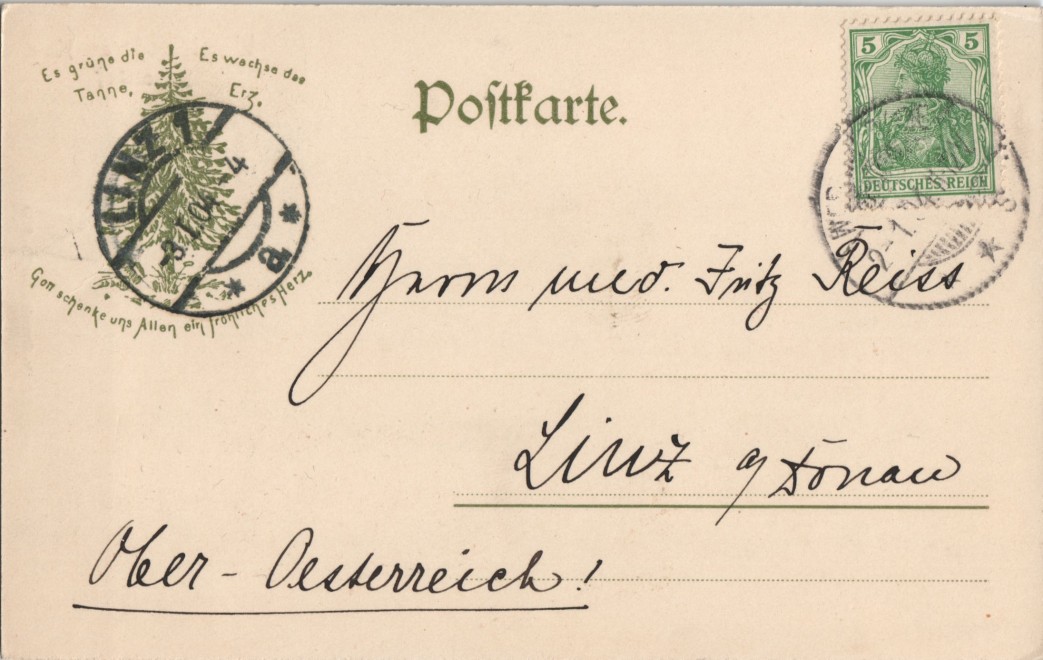 Es grüne die
Tanne,
Es wachse das
Erz.
Gott schenke uns Allen ein fröhliches Herz.
Postkarte.
5 5
DEUTSCHES REICH
LINZ 1
3.1.04-4
* a *
2.1.
*
Herrn med. Fritz Reiss
Linz a/Donau
Ober-Oesterreich!